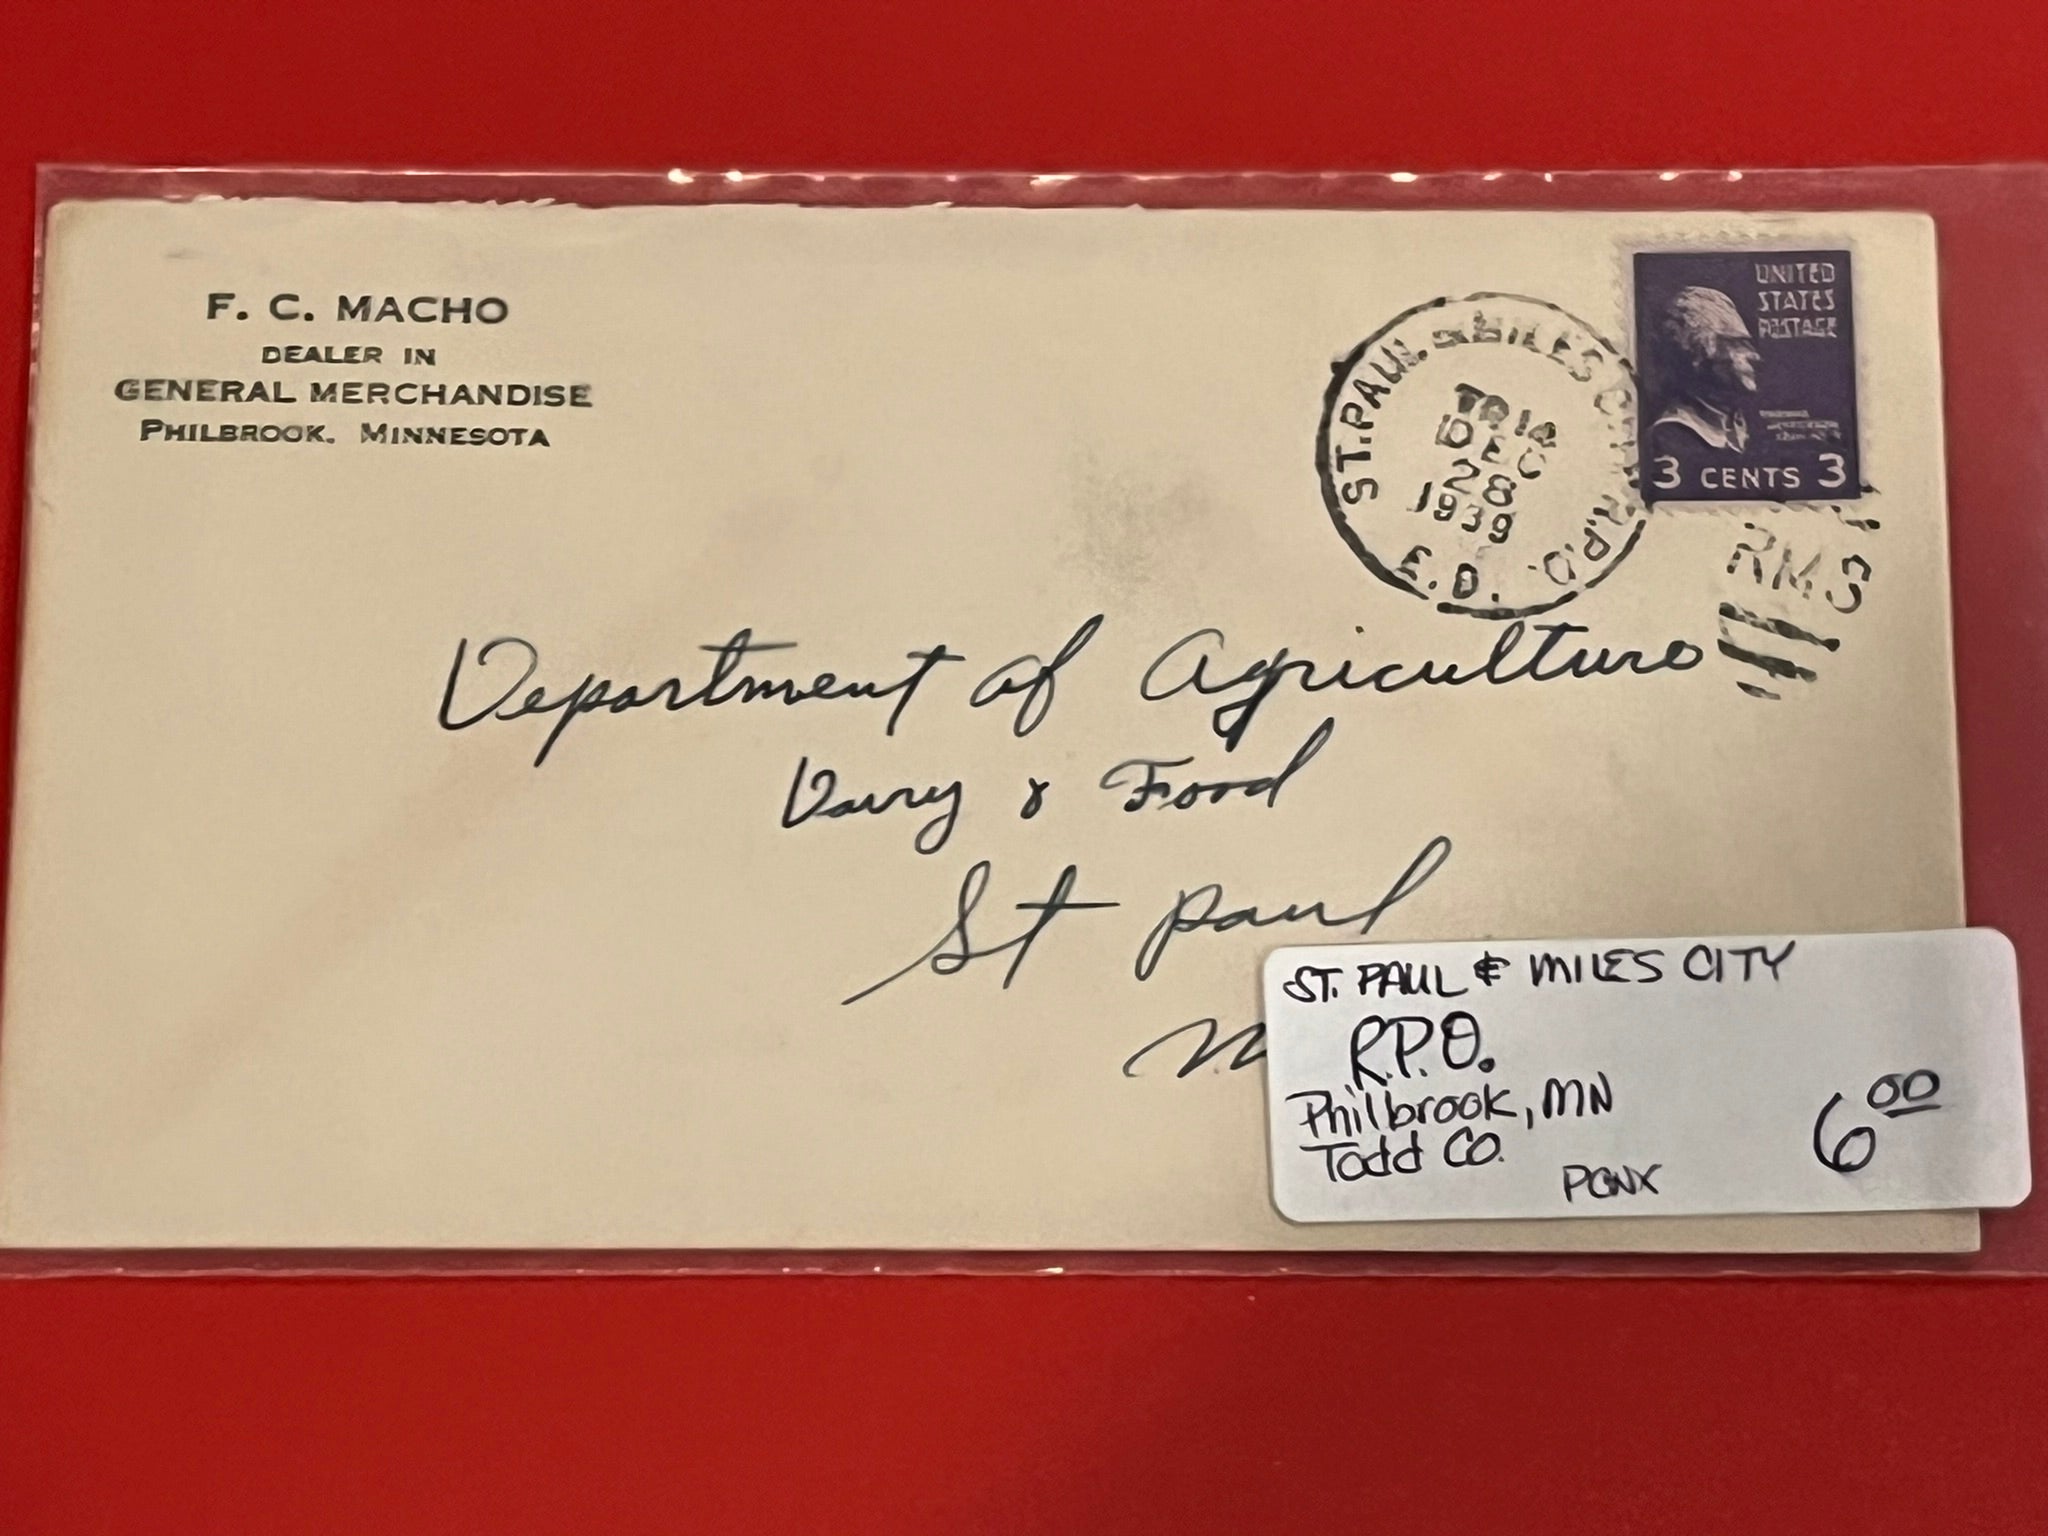 F. C. MACHO
DEALER IN
GENERAL MERCHANDISE
PHILBROOK, MINNESOTA
ST. PAUL & MILES CITY R.P.O.
TR 14
DEC
28
1939
E.D.
UNITED
STATES
POSTAGE
3 CENTS 3
RMS
Department of Agriculture
Dairy & Food
St Paul
ST. PAUL & MILES CITY
R.P.O.
Philbrook, MN
Todd Co.
6.00